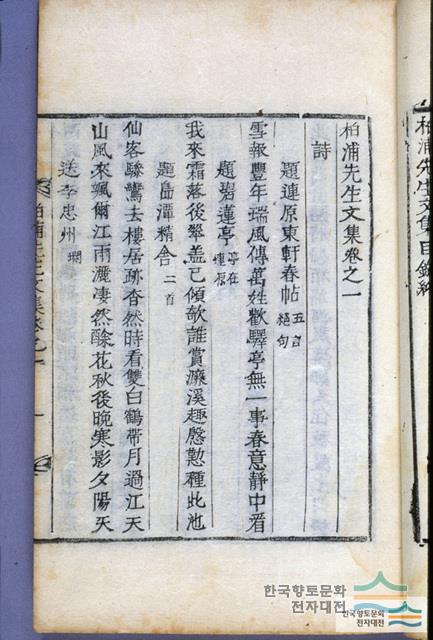 柏浦先生文集卷之一
詩
題連原東軒春帖 五言絕句
雪報豐年瑞風傳萬姓歡驛亭無一事春意靜中看
題碧蓮亭 亭在連原
我來霜落後翠盖已傾欹誰賞濂溪趣慇懃種此池
題島潭精舍 二首
仙客驂鸞去樓居跡杳然時看雙白鶴帶月過江天
山風來颯爾江雨灑凄然酴花秋後晩寒影夕陽天
送李忠州
柏浦先生文集目錄終
한국향토문화
전자대전
한국향토문화
전자대전